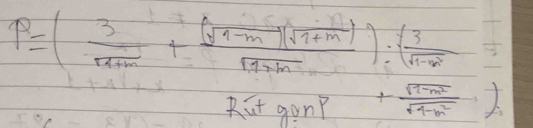 P = ( 3/√(1+m) + (√(1-m))(√(1+m))/√(1+m) ) : ( 3/√(1-m²)
+ √(1-m²)/√(1-m²) )
Rút gọn P